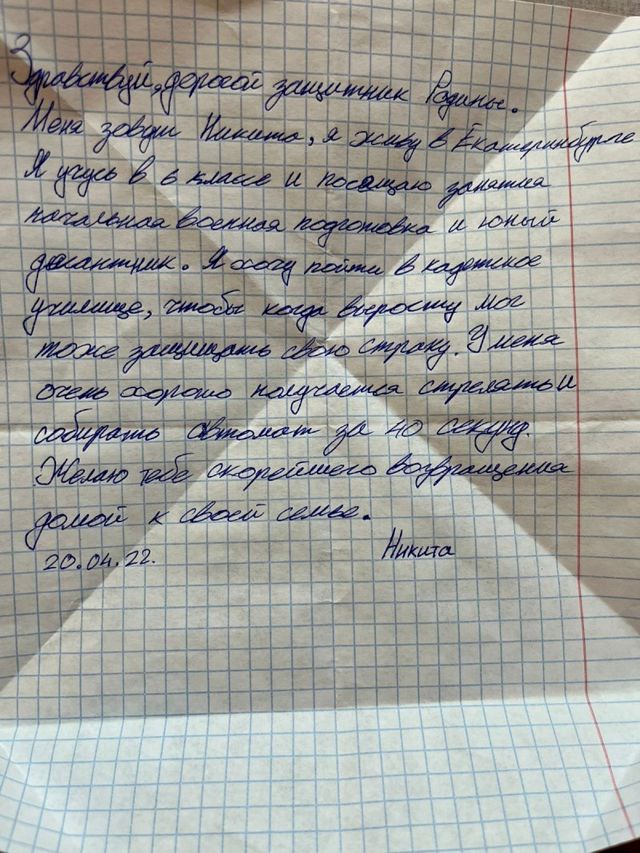 Здравствуй, дорогой защитник Родины.
Меня зовут Никита, я живу в Екатеринбурге
Я учусь в 6 классе и посещаю занятия
начальная военная подготовка и юный
десантник. Я хочу пойти в кадетское
училище, чтобы когда вырросту мог
тоже защищать свою страну. У меня
очень хорошо получается стрелять и
собирать автомат за 40 секунд.
Желаю тебе скорейшего возвращения
домой к своей семье.
20.04.22. Никита